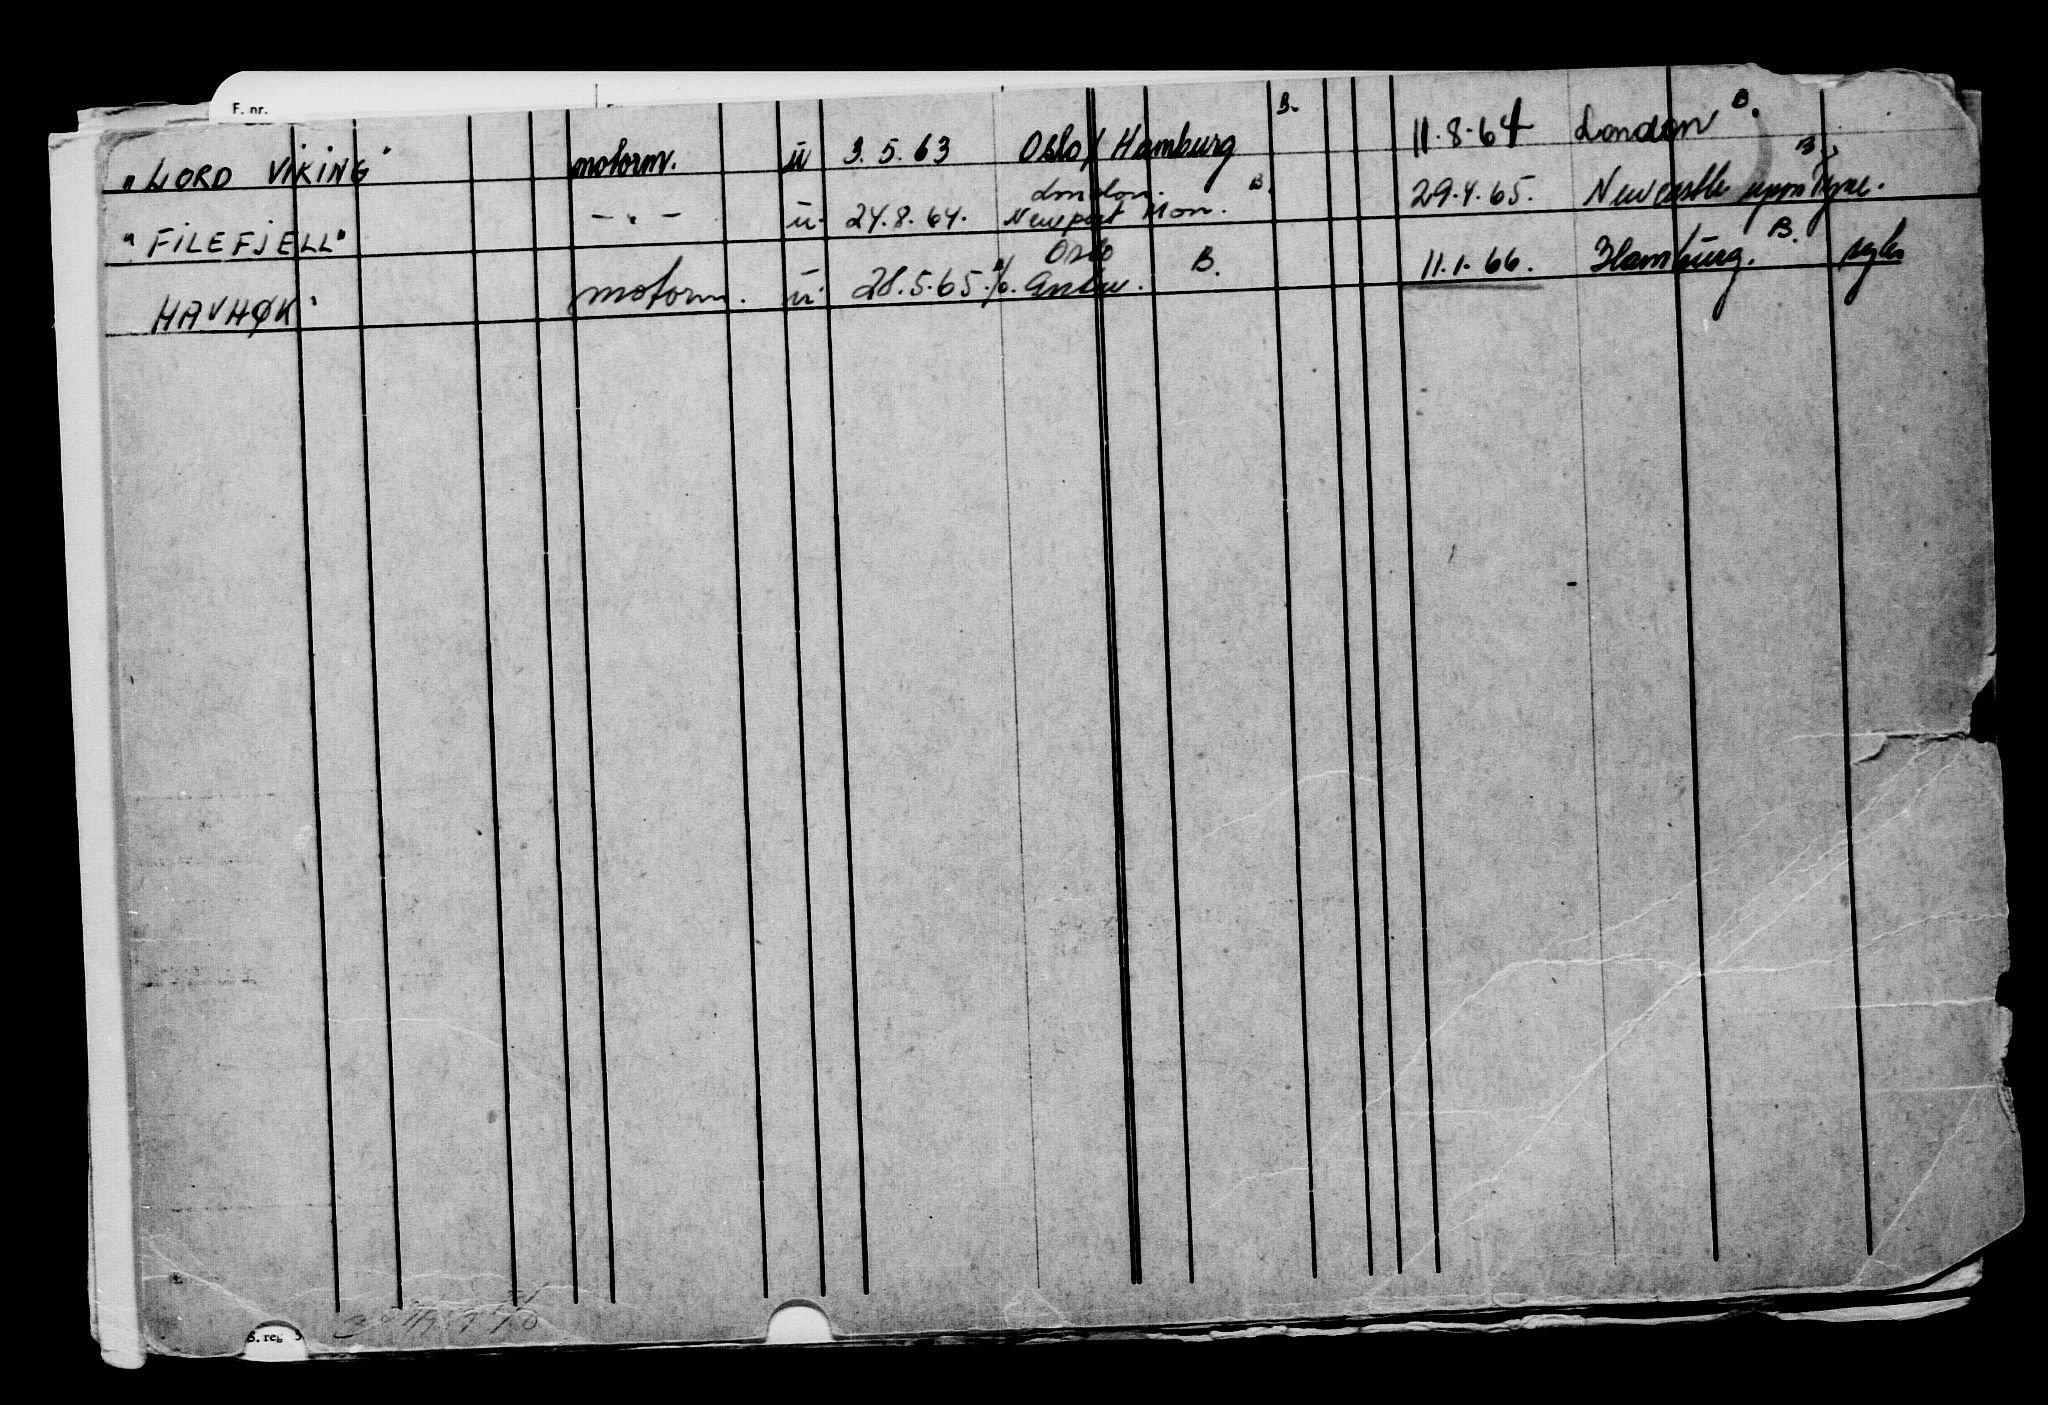 F. nr.
"LORD VIKING" motorm. u 3.5.63 Oslo/Hamburg B. 11.8.64 London B.
London.
"FILEFJELL" — " — u. 24.8.64. Newport Mon. B. 29.4.65. Newcastle upon Tyne. B.
Oslo
HAVHØK" motorm. u. 28.5.65. Antw. B. 11.1.66. Hamburg. B.
S. reg